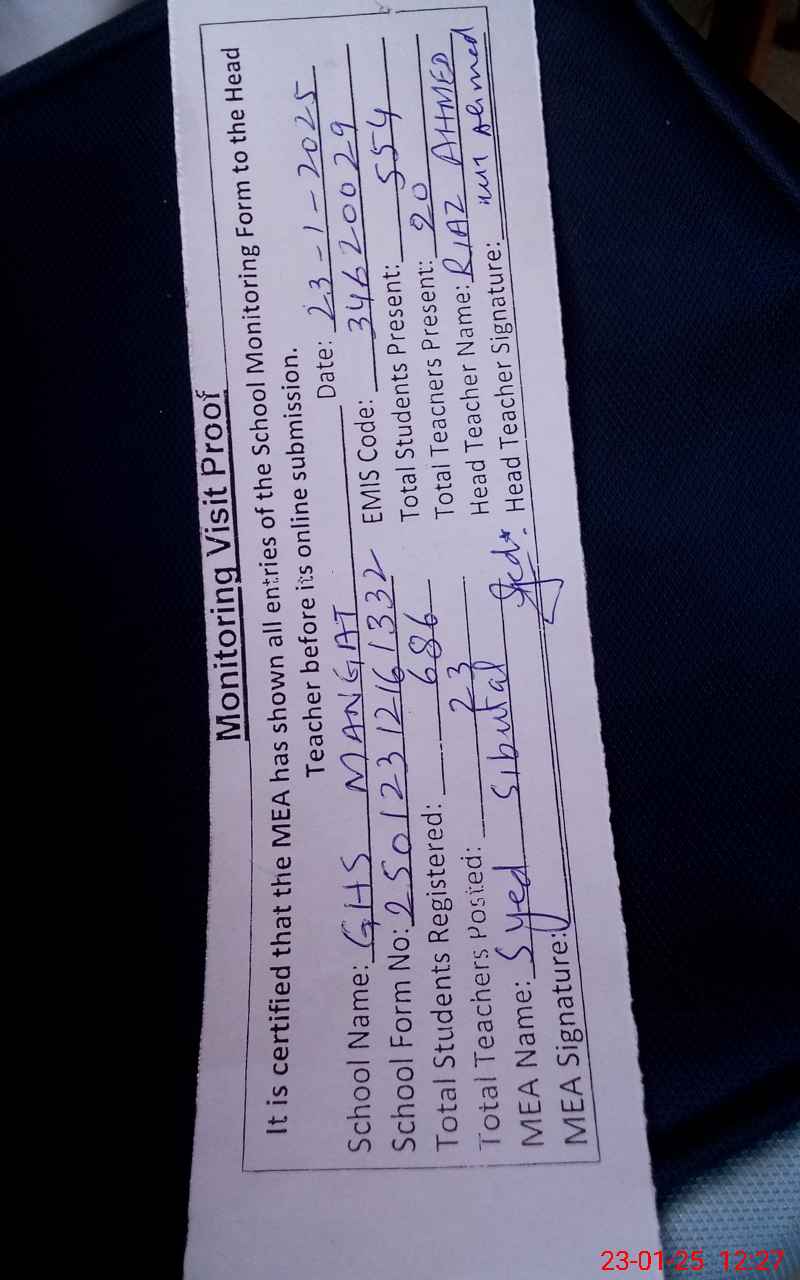 Monitoring Visit Proof
It is certified that the MEA has shown all entries of the School Monitoring Form to the Head
Teacher before its online submission.
School Name: GHS MANGAT Date: 23-1-2025
School Form No: 25012312161332 EMIS Code: 34620029
Total Students Registered: 686 Total Students Present: 554
Total Teachers Posted: 23 Total Teachers Present: 20
MEA Name: Syed Sibutal Head Teacher Name: RIAZ AHMED
MEA Signature: Head Teacher Signature: Ahmed
23-01-25 12:27